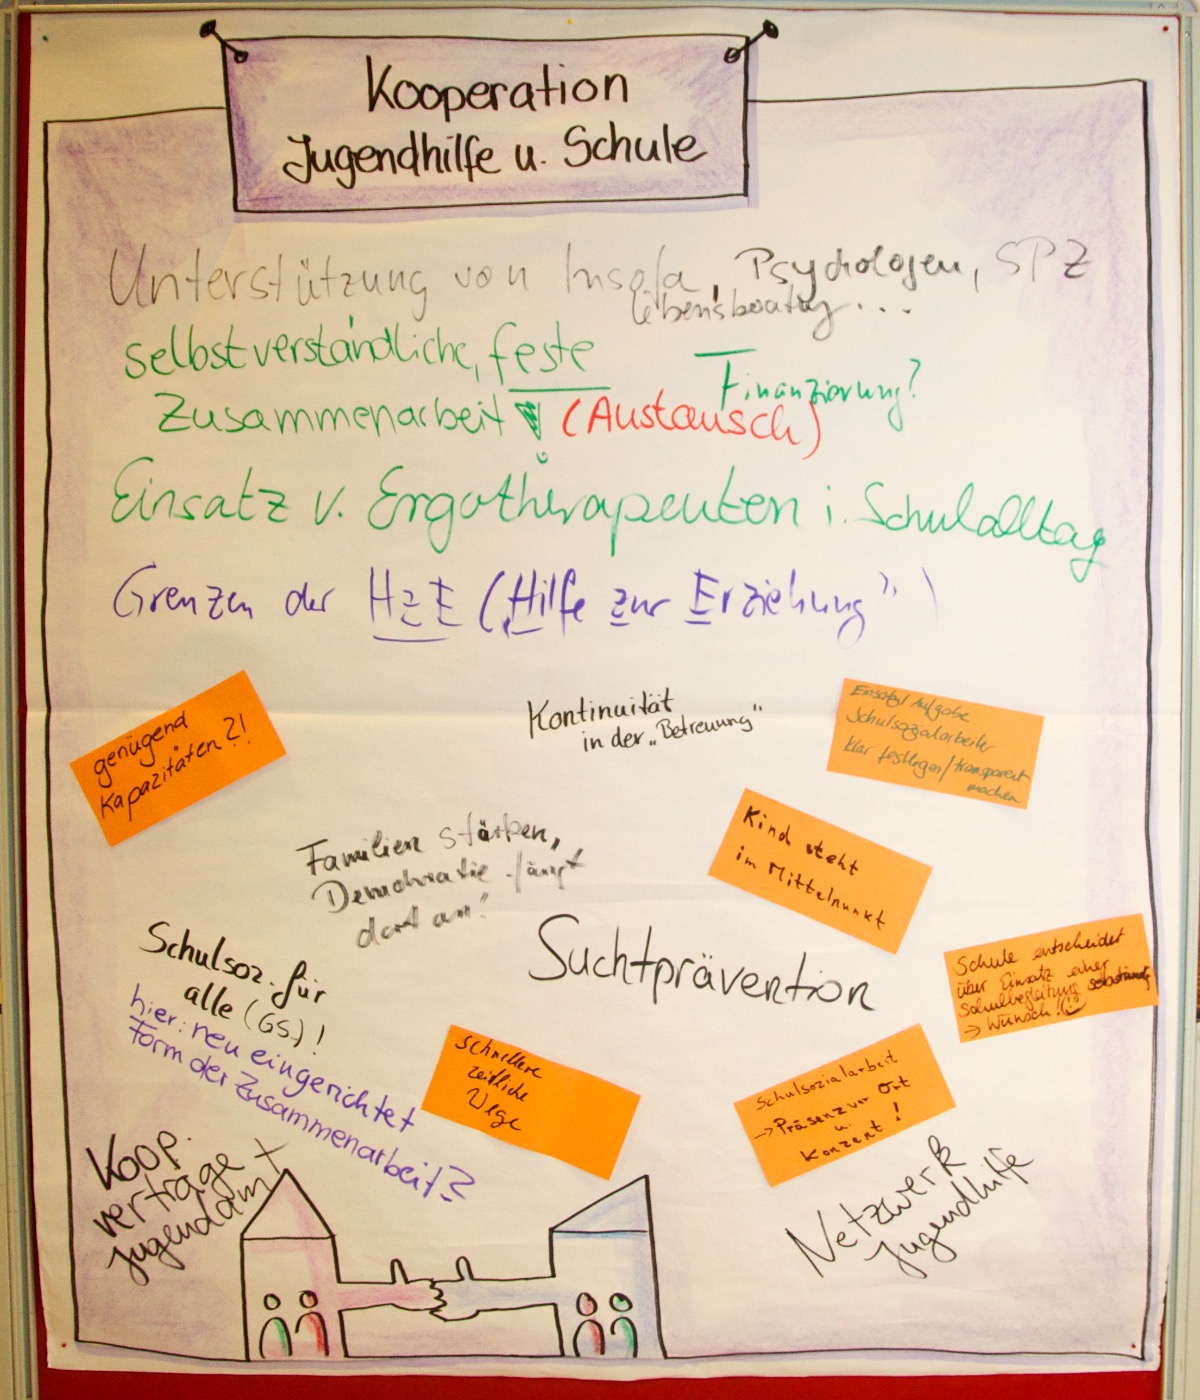 Kooperation
Jugendhilfe u. Schule
Unterstützung von Insofa, Psychologen, SPZ
Lebensberatung...
selbstverständliche, feste
Zusammenarbeit (Austausch)
Finanzierung?
Einsatz v. Ergotherapeuten i. Schulalltag
Grenzen der HzE („Hilfe zur Erziehung")
genügend
Kapazitäten?!
Kontinuität
in der „Betreuung"
Einsatz/Aufgabe
Schulsozialarbeiter
klar festlegen/transparent
machen
Familien stärken,
Demokratie fängt
dort an!
Kind steht
im Mittelpunkt
Suchtprävention
Schule entscheidet
über Einsatz einer
Schulbegleitung selbständig
→ Wunsch!
Schulsoz. für
alle (GS.)!
hier: neu eingerichtet
Form der Zusammenarbeit?
schnellere
zeitliche
Wege
Schulsozialarbeit
→ Präsenz vor Ort
u.
Konzept!
Koop.
verträge +
Jugendamt
Netzwerk
Jugendhilfe